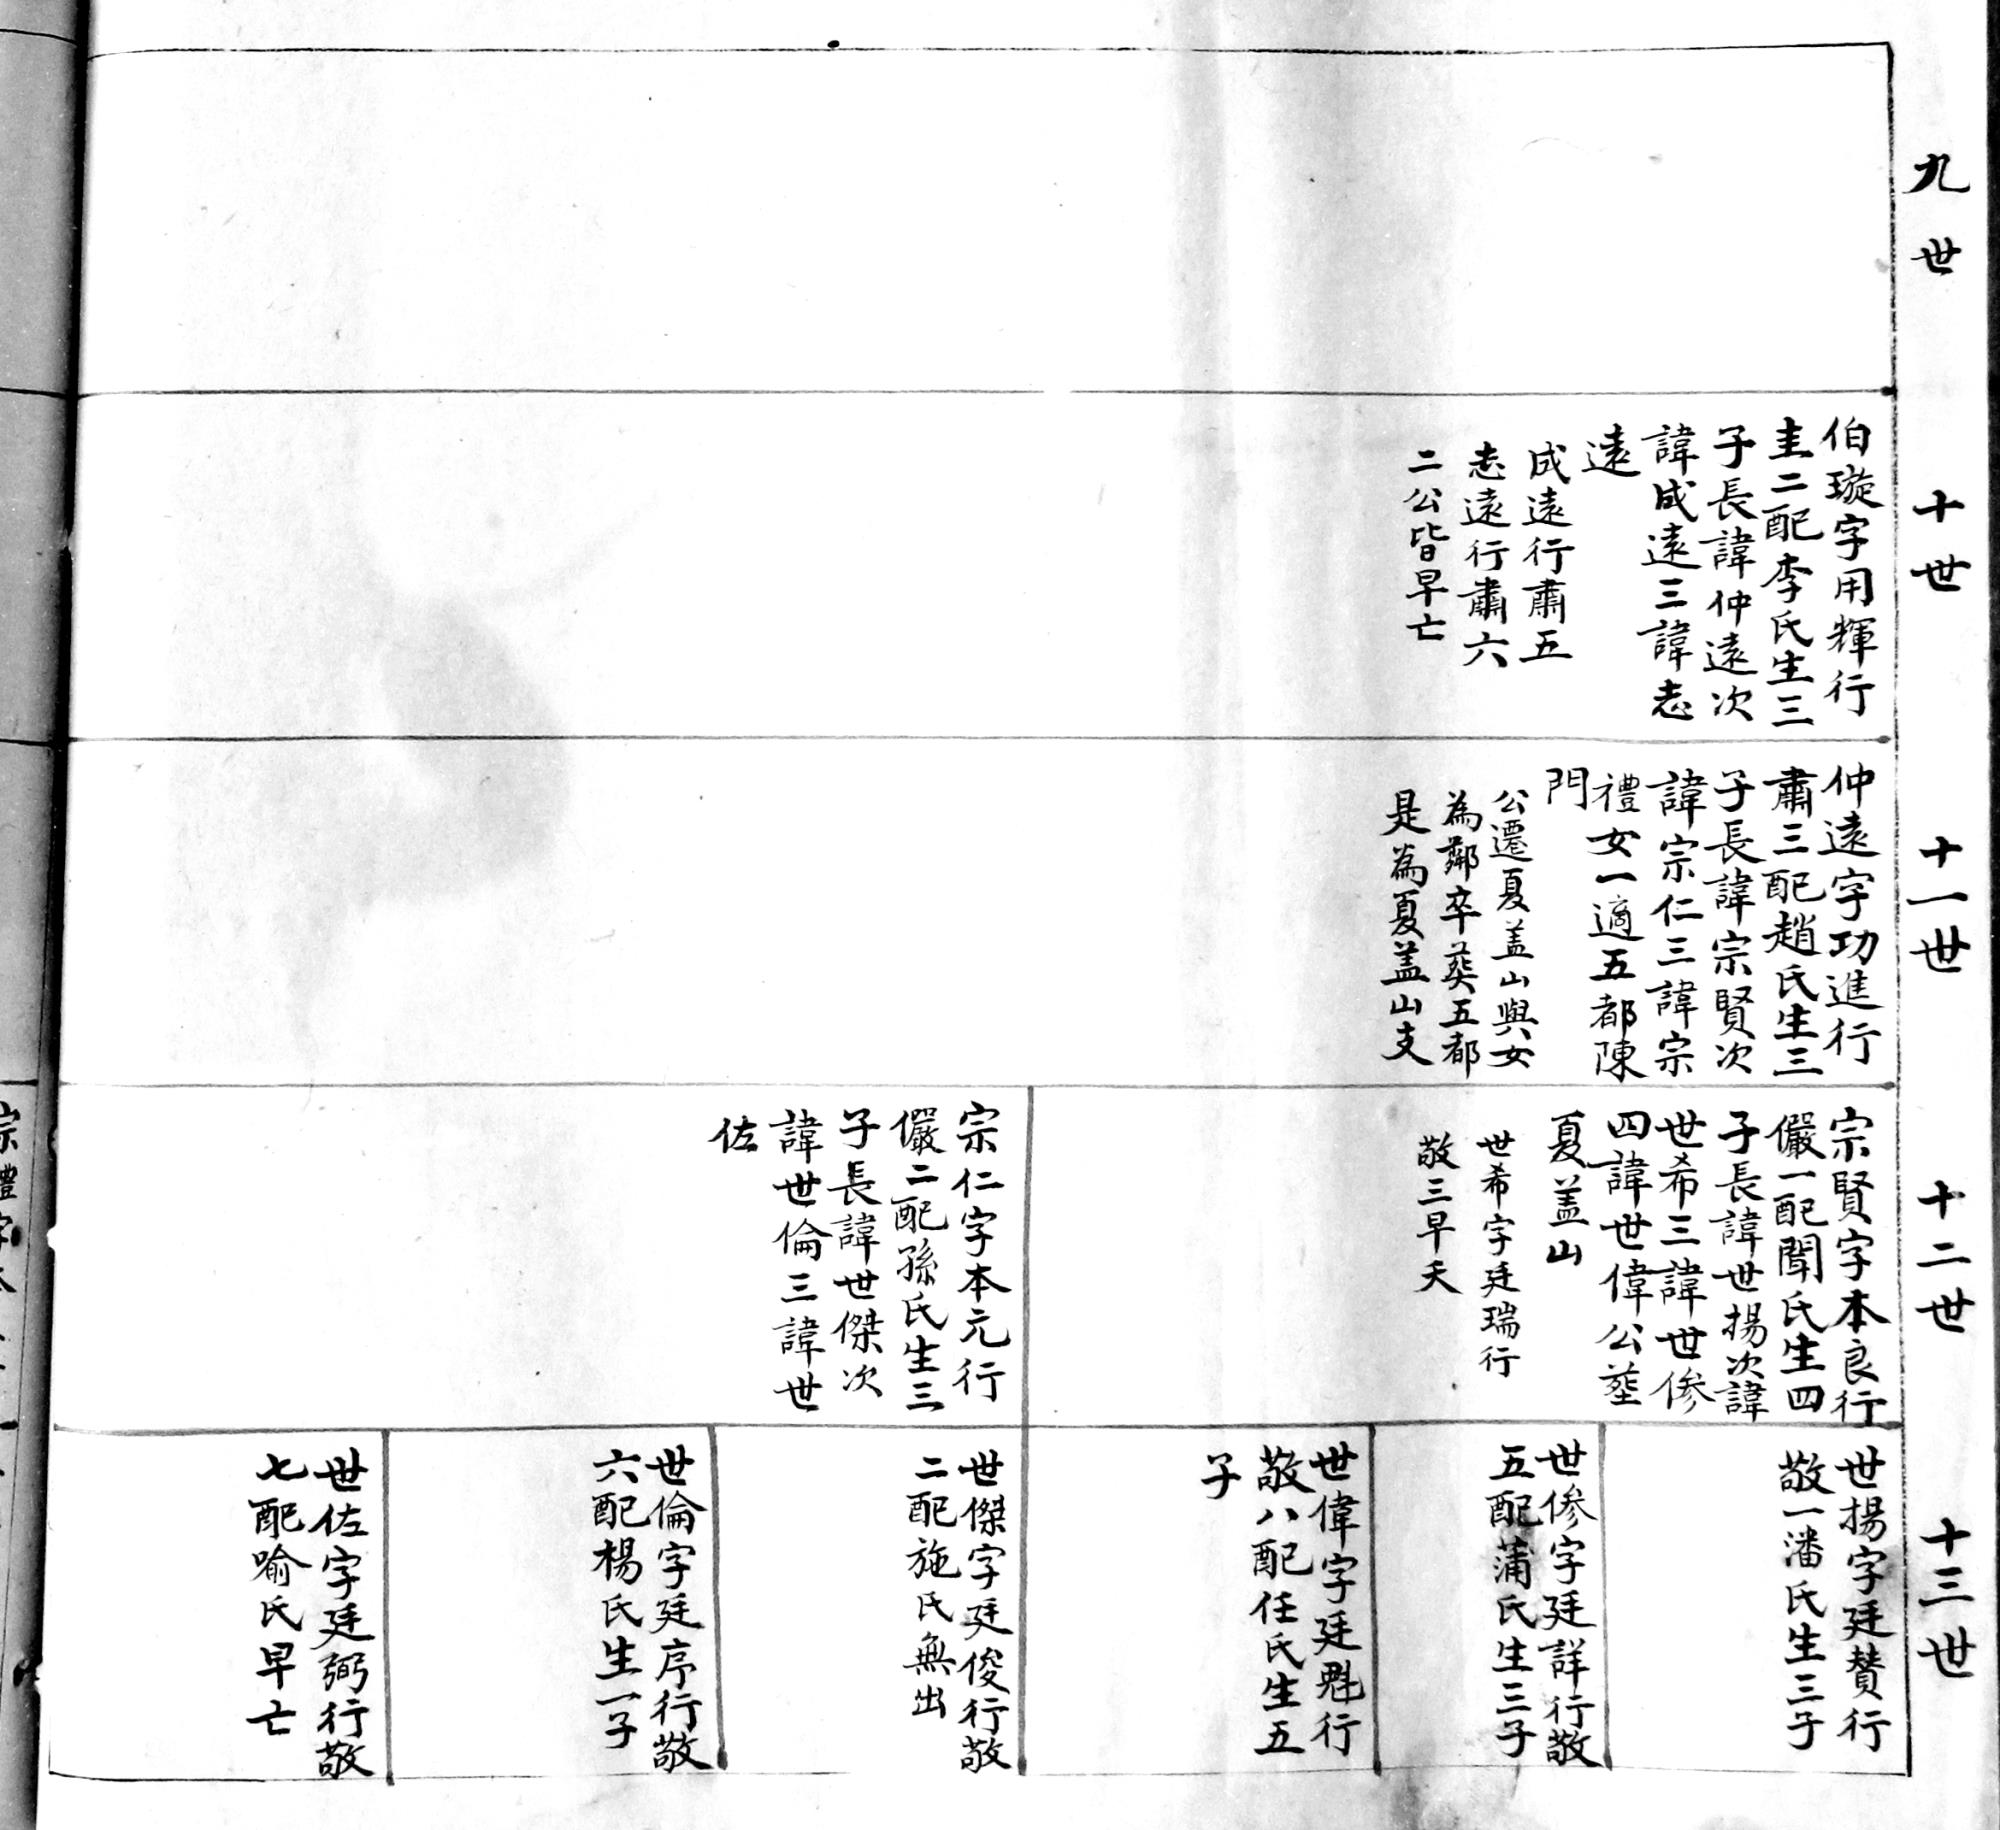 九世
十世
伯璇字用輝行
圭二配李氏生三
子長諱仲遠次
諱成遠三諱志
遠
成遠行肅五
志遠行肅六
二公皆早亡
十一世
仲遠字功進行
肅三配趙氏生三
子長諱宗賢次
諱宗仁三諱宗
禮女一適五都陳
門
公遷夏盖山與女
為鄰卒葬五都
是為夏盖山支
十二世
宗賢字本良行
儼一配聞氏生四
子長諱世揚次諱
世希三諱世修
四諱世偉公塟
夏盖山
世希字廷瑞行
敬三早夭
宗仁字本元行
儼二配孫氏生三
子長諱世傑次
諱世倫三諱世
佐
十三世
世揚字廷贊行
敬一潘氏生三子
世修字廷詳行敬
五配蒲氏生三子
世偉字廷魁行
敬八配任氏生五
子
世傑字廷俊行敬
二配施氏無出
世倫字廷序行敬
六配楊氏生一子
世佐字廷弼行敬
七配喻氏早亡
宗禮字本